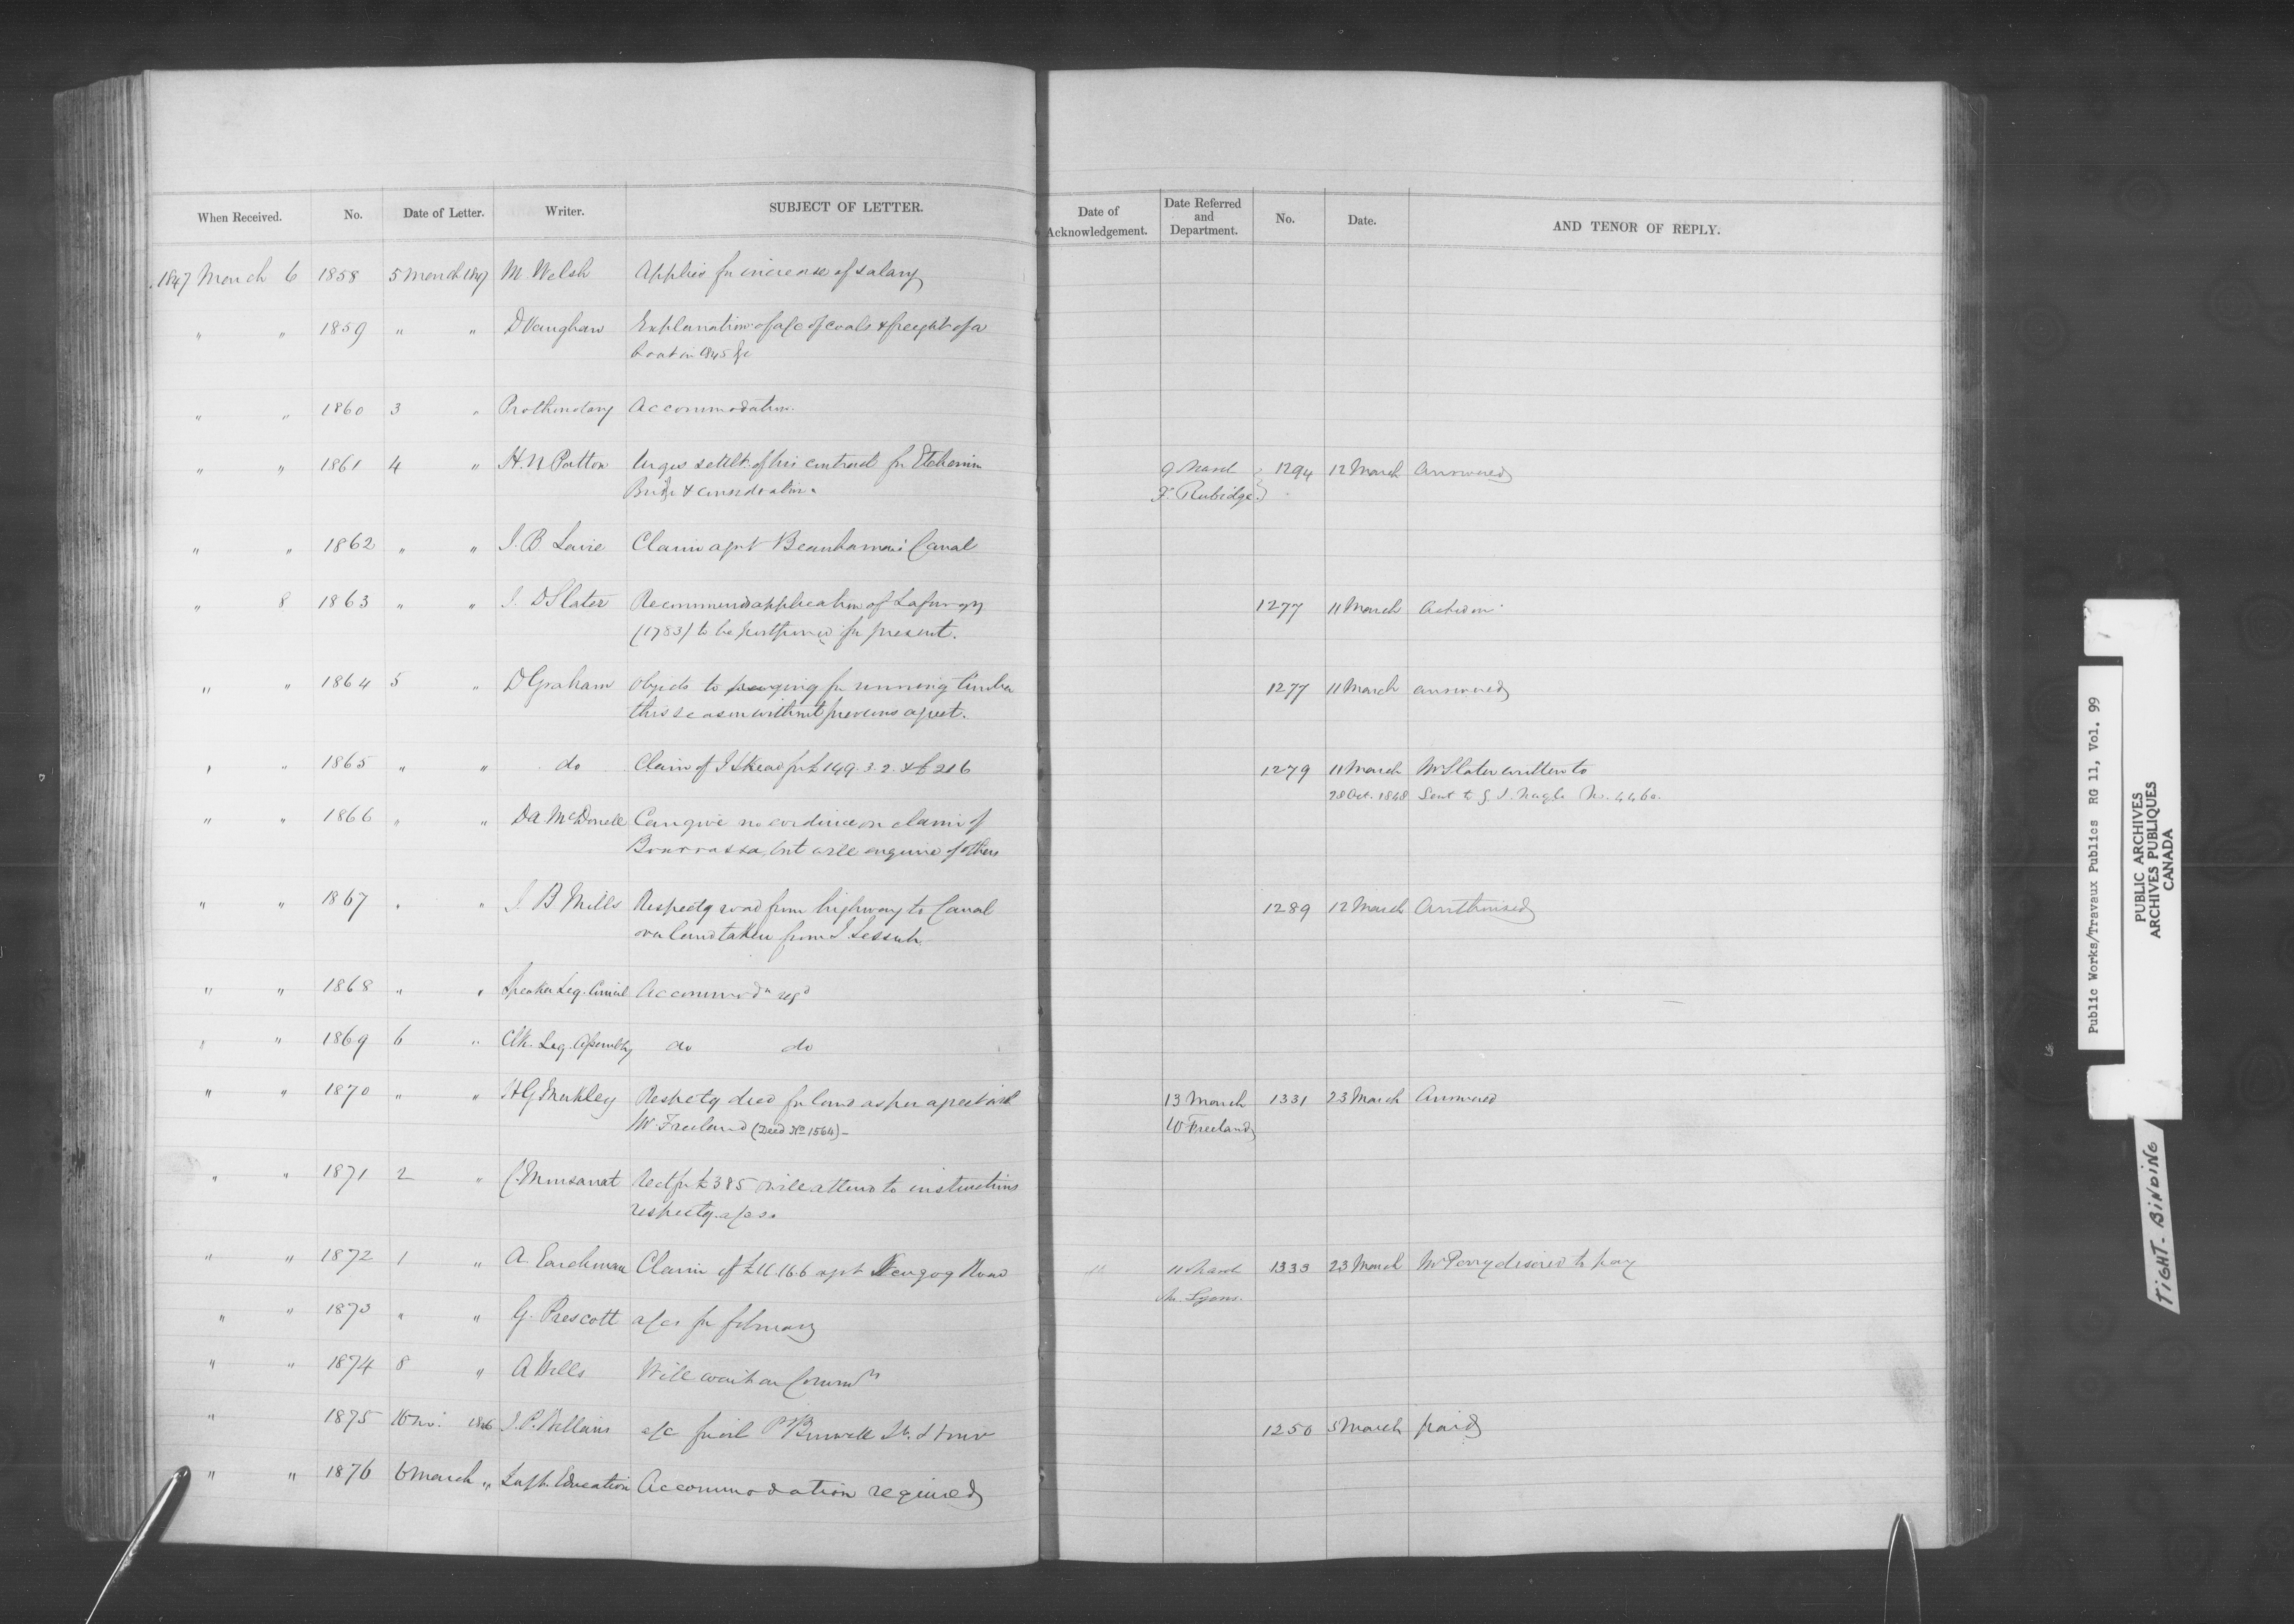 When Received. No. Date of Letter. Writer. SUBJECT OF LETTER. Date of Acknowledgement. Date Referred and Department. No. Date. AND TENOR OF REPLY.
1847 March 6 1858 5 March 1847 M. Welsh Applies for increase of salary
" " 1859 " " D Vaughan Explanation of a/c of coals & freight of a
boat in 1845 &c
" " 1860 3 " Prothonotary Accommodation.
" " 1861 4 " H. N Patton Urges settlt. of his contract for Etchemin 9 March 1294 12 March Answered
Bridge & consideration. F. Rubidge
" " 1862 " " J. B. Lavie Claim agst Beauharnois Canal
" 8 1863 " " J. D Slater Recommends application of Lafurgy 1277 11 March Acted on
(1783) to be postponed for present.
" " 1864 5 " D Graham Objects to paying for running timber 1277 11 March answered
this season without previous agreet.
" " 1865 " " do Claim of J Skead for £149.3.2. & £216 1279 11 March Mr Slater written to
28 Oct. 1848 Sent to J. Nagle No. 4460.
" " 1866 " " DA McDonell Can give no evidence on claim of
Bourrassa, but will enquire of others
" " 1867 " " J. B Mills Respectg road from highway to Canal 1289 12 March Authorised
over land taken from J.
" " 1868 " " Speaker Leg. Council Accommodn reqd
" " 1869 6 " Clk. Leg. Assembly do do
" " 1870 " " HG Merkley Respectg deed for land as per agreet with 13 March 1331 23 March Answered
W. Freeland (Deed No 1564) – W Freeland
" " 1871 2 " C. Mursanat Rect for £385 will attend to instructions
respectg. a/cs.
" " 1872 1 " A. Claim of £11.16.6 agst Road 11 11 March 1333 23 March Mr Perry desired to pay
M. Lyons.
" " 1873 " " G. Prescott a/cs for february
" " 1874 8 " A Wells Will wait on Commrs
" 1875 16 Nov. 1846 J. P. Wellains a/c for oil P Burwell Lt. House 1250 5 March paid
" " 1876 6 March " Supt. Education Accommodation required
Public Works/Travaux Publics RG 11, Vol. 99
PUBLIC ARCHIVES
ARCHIVES PUBLIQUES
CANADA
TIGHT-BINDING